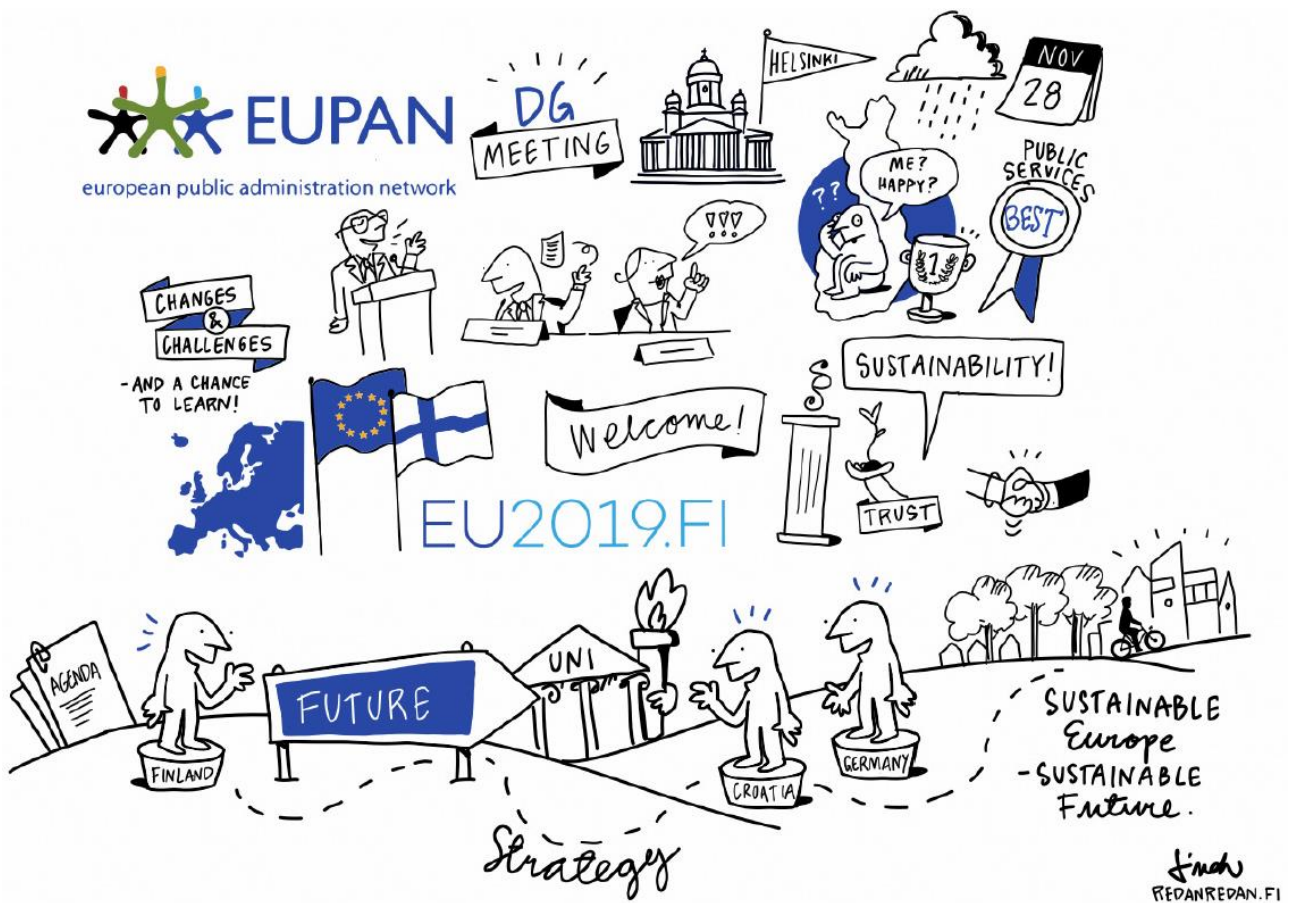 EUPAN
european public administration network
DG
MEETING
HELSINKI
NOV
28
ME?
HAPPY?
??
PUBLIC
SERVICES
BEST
1
!!!
CHANGES
&
CHALLENGES
- AND A CHANCE
TO LEARN!
Welcome!
§
SUSTAINABILITY!
TRUST
EU2019.FI
AGENDA
FINLAND
FUTURE
UNI
CROATIA
GERMANY
Strategy
SUSTAINABLE
Europe
- SUSTAINABLE
Future.
REDANREDAN.FI